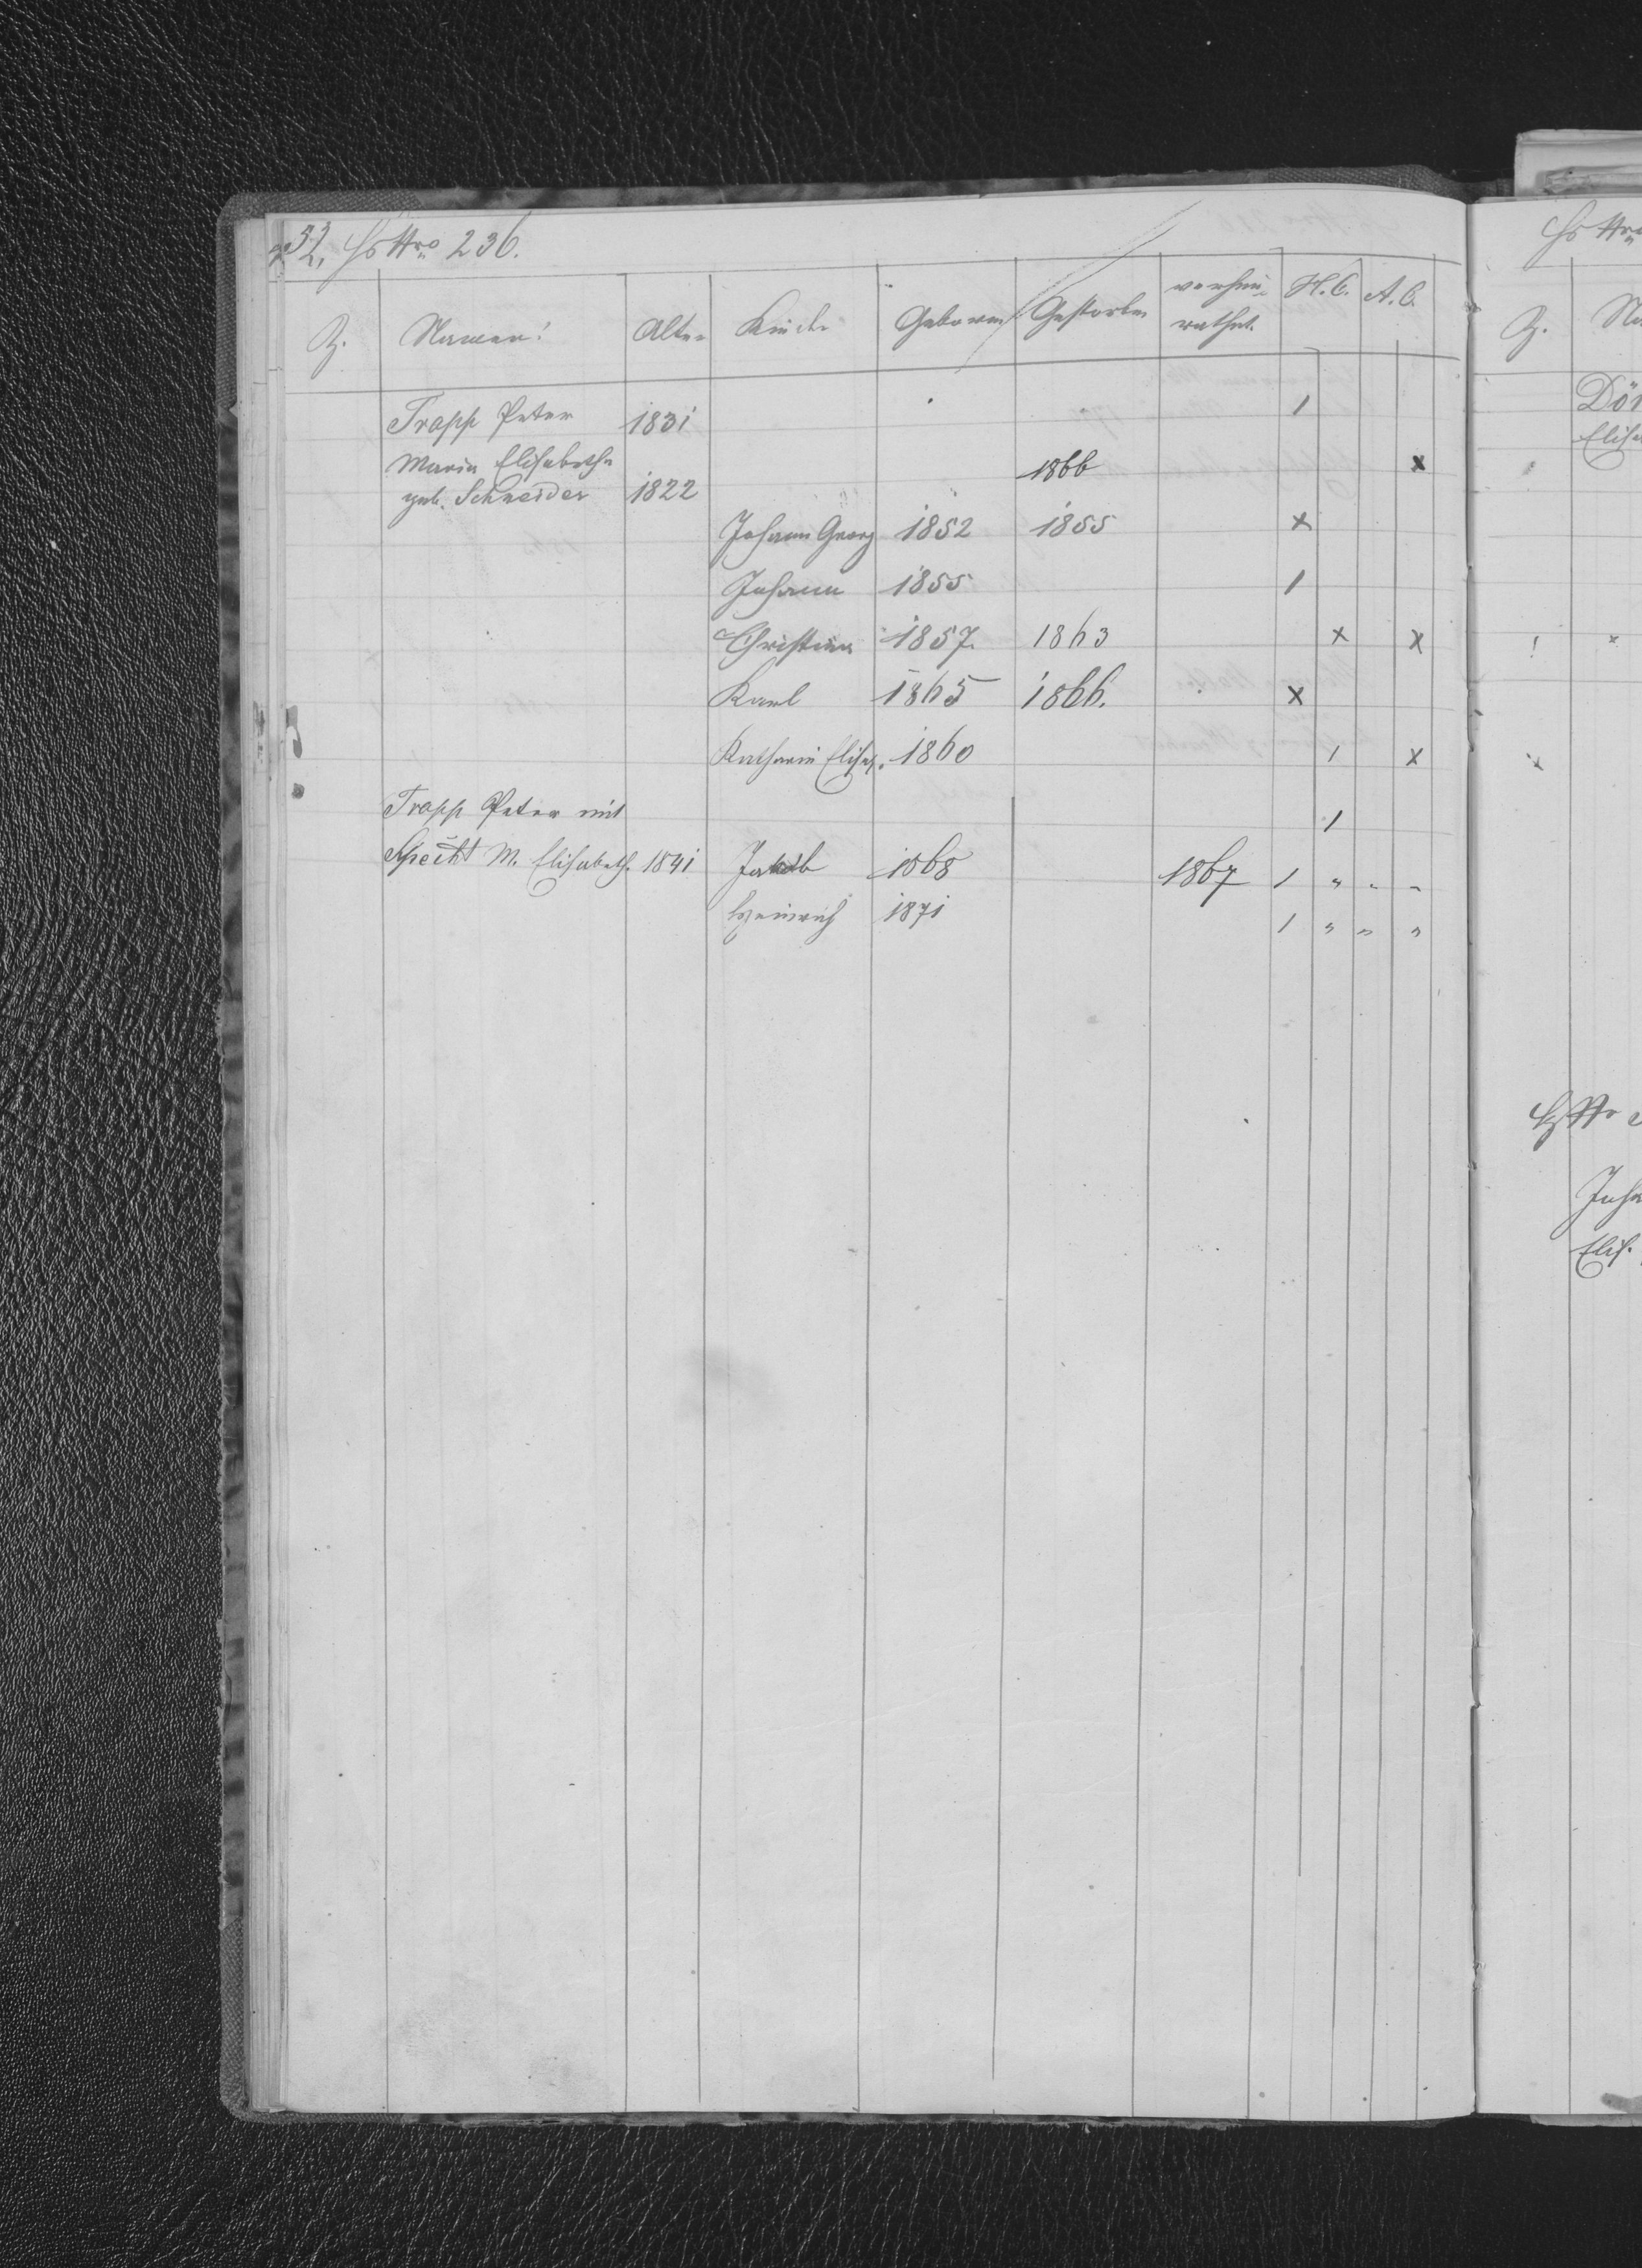 52, Hs Nro 236.
Z. Namen! Alter Kinder Geboren Gestorben verheu-rathet. H. C. A. C.
Trapp Peter 1831 1
Maria Elisabetha 1866 x
geb. Schneider 1822
Johann Georg 1852 1855 x
Johann 1855 1
Christina 1857. 1863 x x
Karl 1865 1866. x
Katharin Elisab. 1860 1 x
Trapp Peter mit 1
Specht M. Elisabeth. 1841 Jakob 1868 1867 1 " " "
Heinrich 1871 1 " " "
Hs Nro
Z.
Dör
Elisa
Joha
Elis.